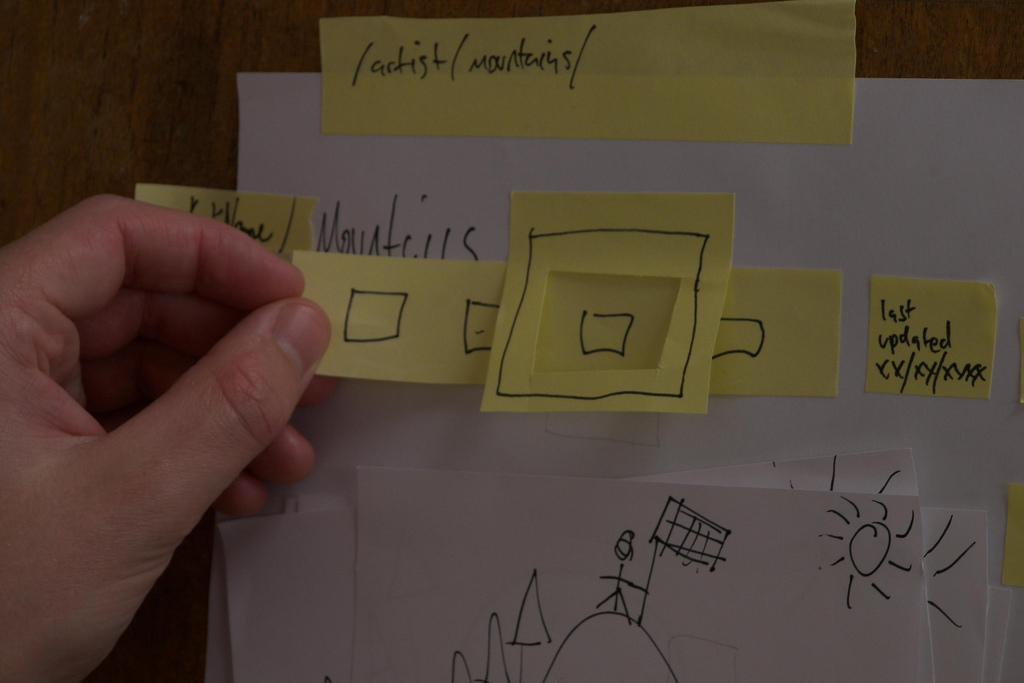 /artist/mountains/
Name/ Mountains
last
updated
xx/xx/xxxx